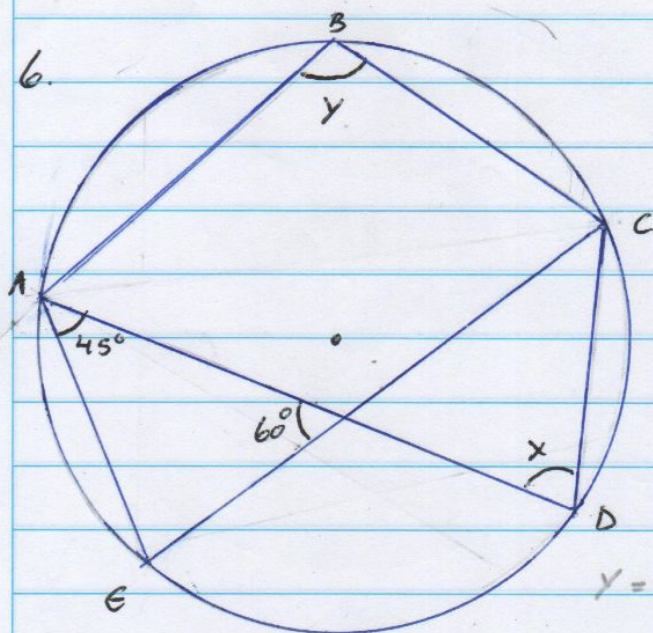 B
6.
y
C
A
45°
60°
x
D
E
y =